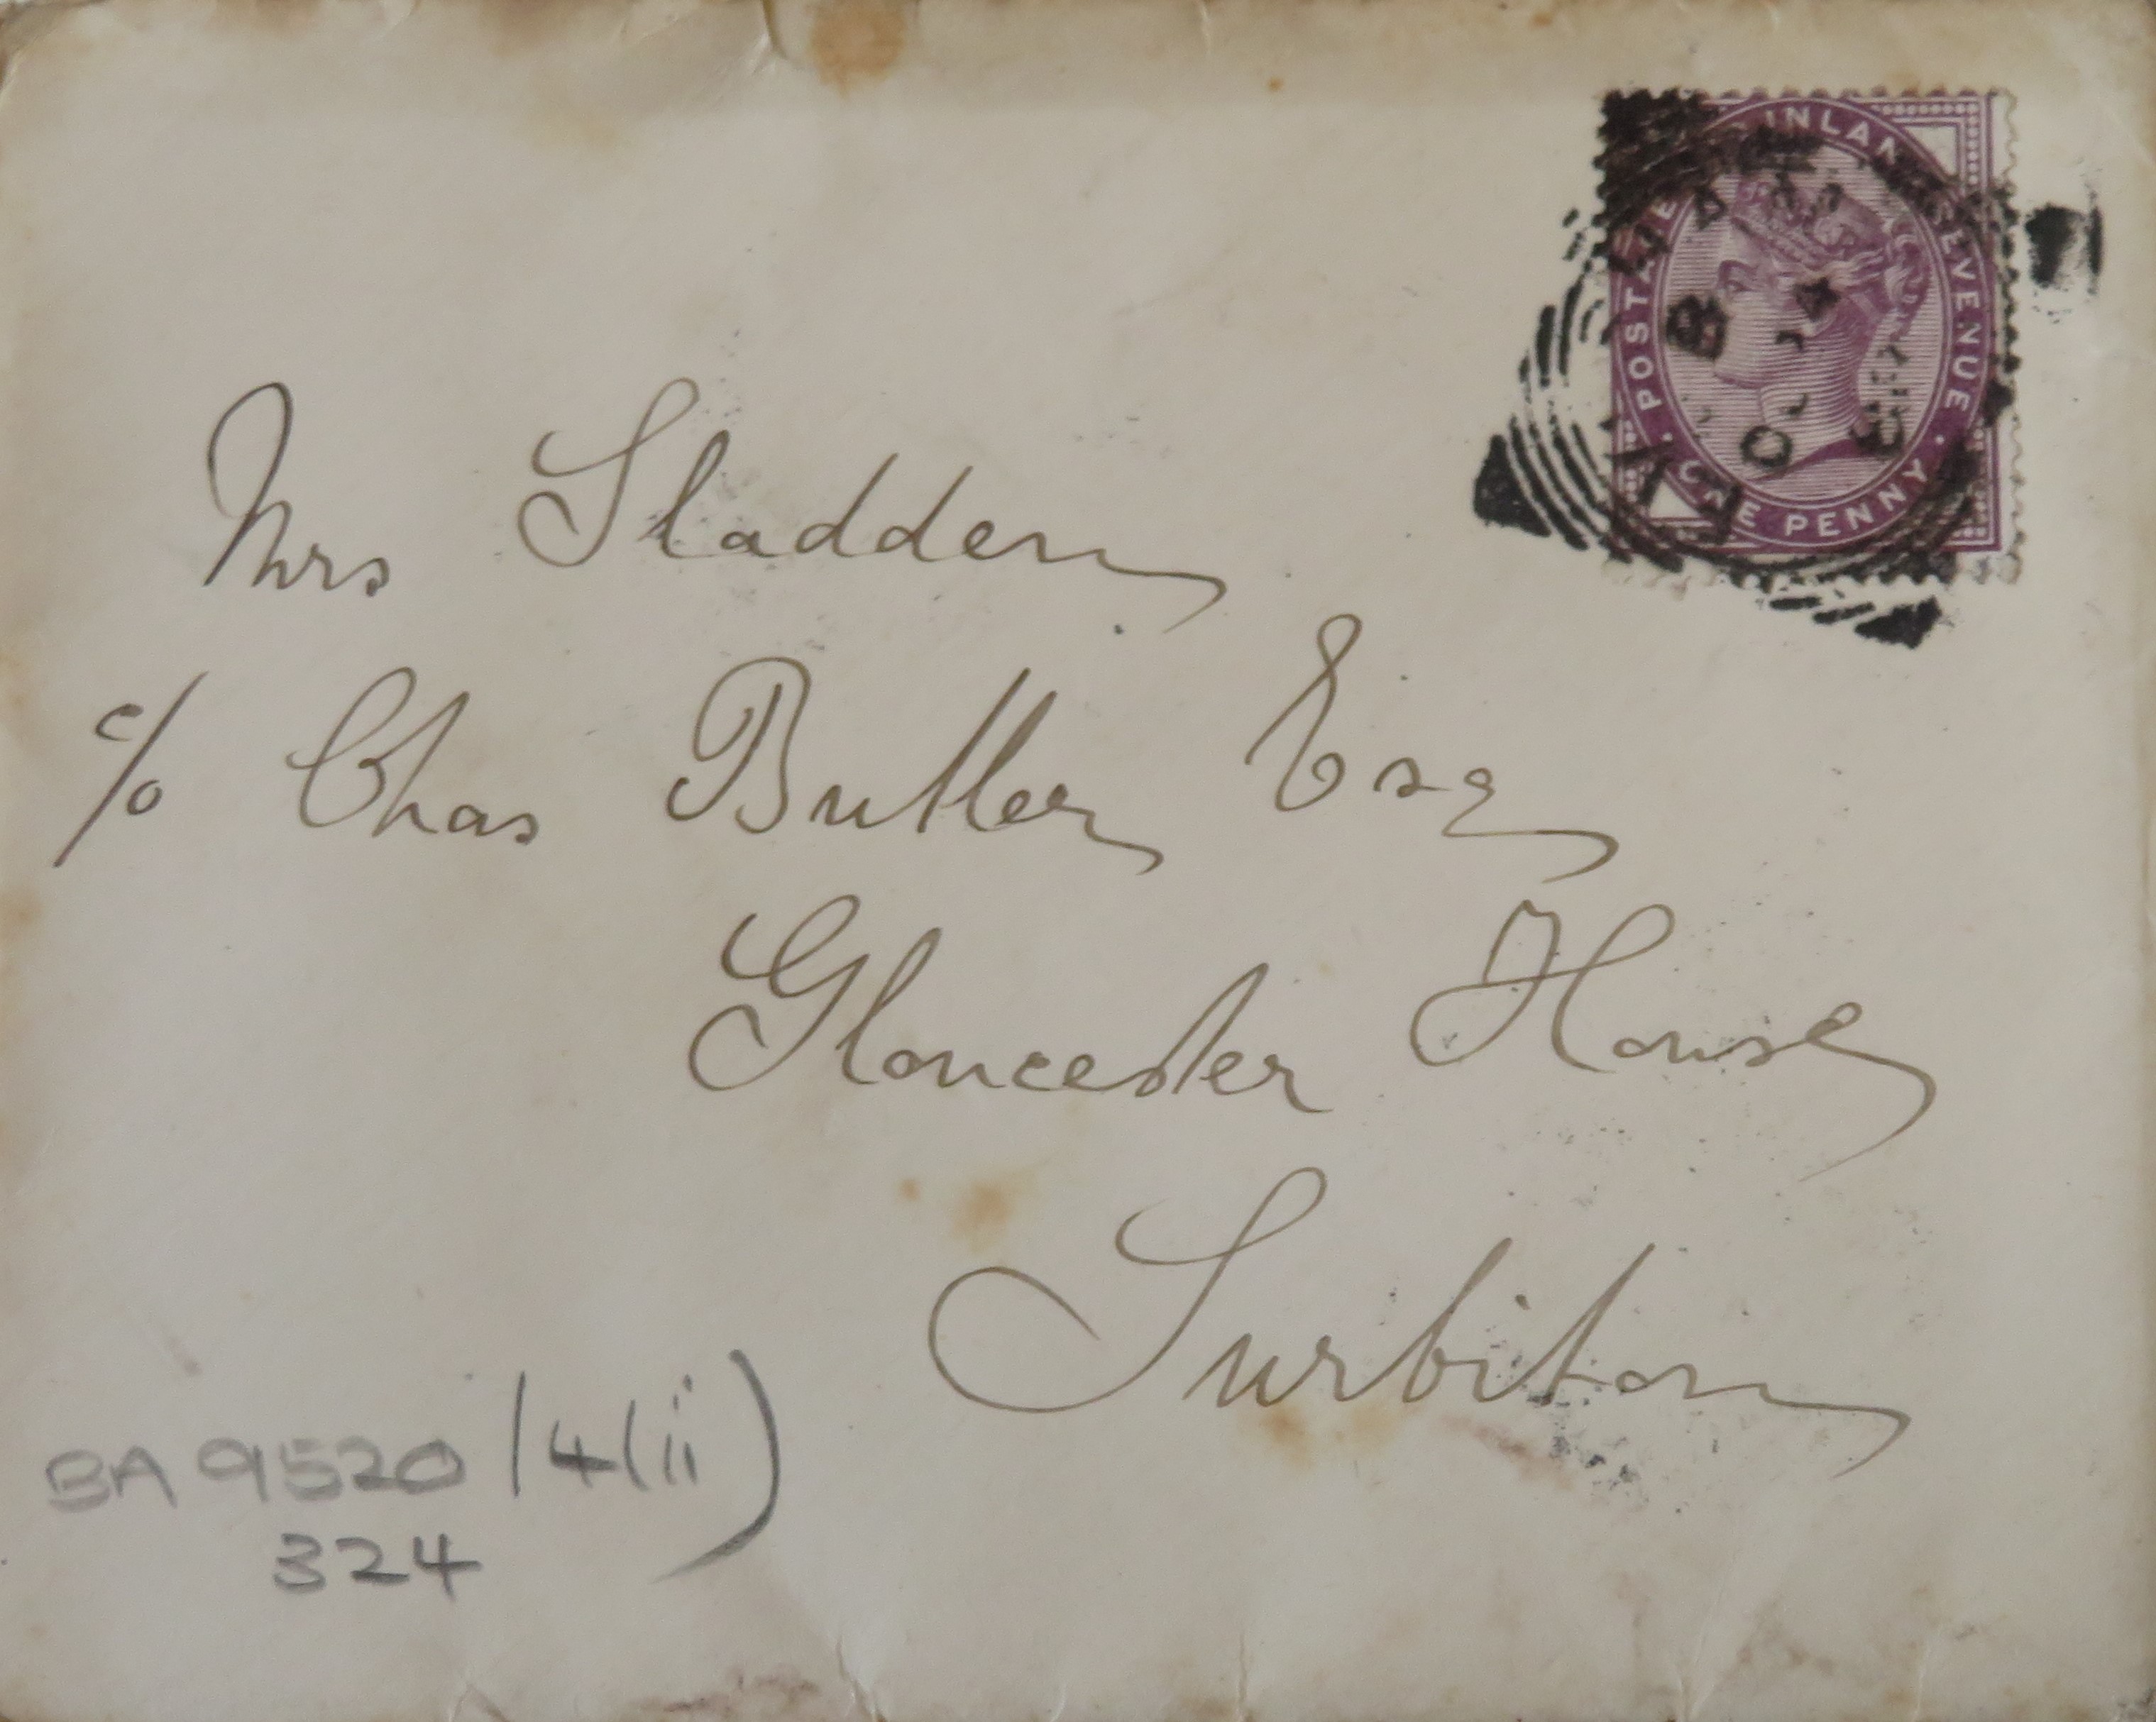 POSTAGE INLAND REVENUE
ONE PENNY
Mrs Sladden
c/o Chas Butler Esq
Gloucester House
Surbiton
BA 9520/4(ii)
324